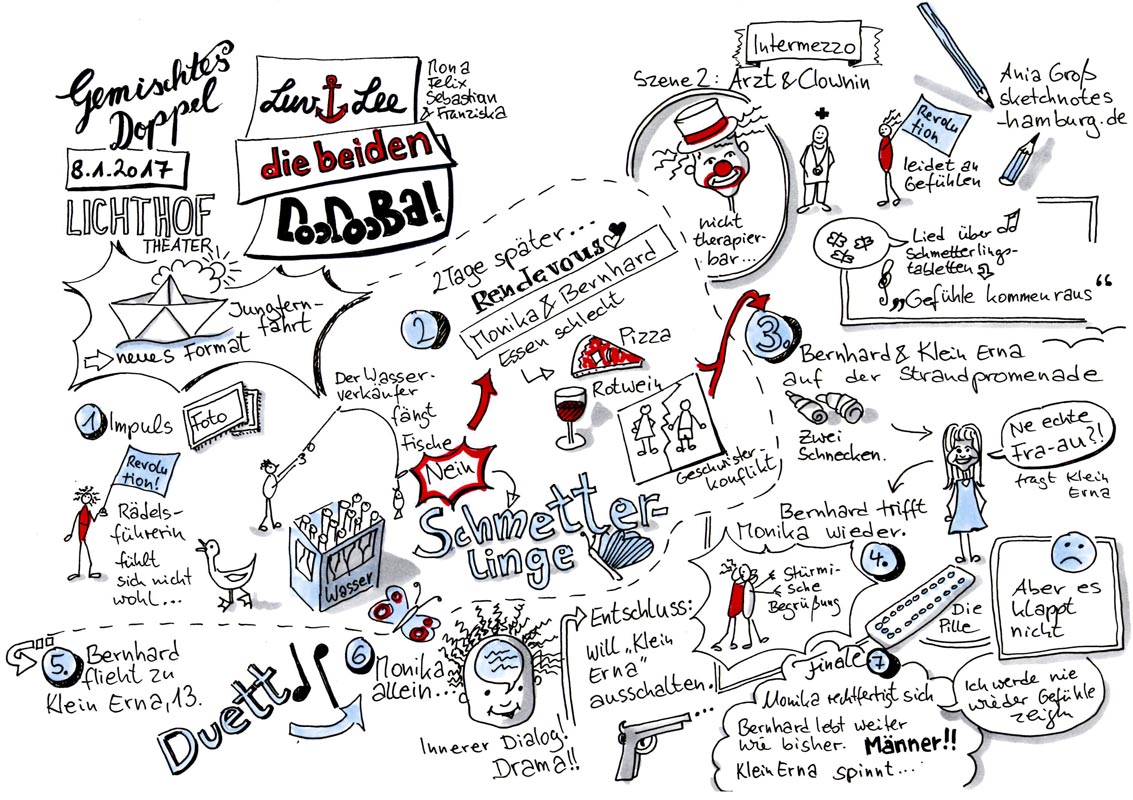 Gemischtes
Doppel
8.1.2017
LICHTHOF
THEATER
Luv Lee
die beiden
DooDooBa!
Mona
Felix
Sebastian
& Franziska
Jungfern-
fahrt
neues Format
1 Impuls
Foto
Revolu
tion!
Rädels-
führerin
fühlt
sich nicht
wohl...
Der Wasser-
verkäufer
fängt
Fische
Nein
Wasser
Schmetter-
linge
2
2 Tage später...
Rendevous
Monika & Bernhard
Essen schlecht
Pizza
Rotwein
Geschwister-
konflikt
Intermezzo
Szene 2: Arzt & Clownin
nicht
therapier-
bar...
Revolu
tion
leidet an
Gefühlen
Ania Groß
sketchnotes
-hamburg.de
Lied über
Schmetterlings-
tabletten
„Gefühle kommen raus“
3.
Bernhard & Klein Erna
auf der Strandpromenade
Zwei
Schnecken.
Ne echte
Fra-au?!
fragt Klein
Erna
Bernhard trifft
Monika wieder.
4.
Stürmi-
sche
Begrüßung
Die
Pille
Aber es
klappt
nicht
5. Bernhard
flieht zu
Klein Erna, 13.
Duett
6 Monika
allein...
Innerer Dialog!
Drama!!
Entschluss:
will „Klein
Erna“
ausschalten.
...
finale 7
Monika rechtfertigt sich
Bernhard lebt weiter
wie bisher. Männer!!
Klein Erna spinnt...
Ich werde nie
wieder Gefühle
zeigen